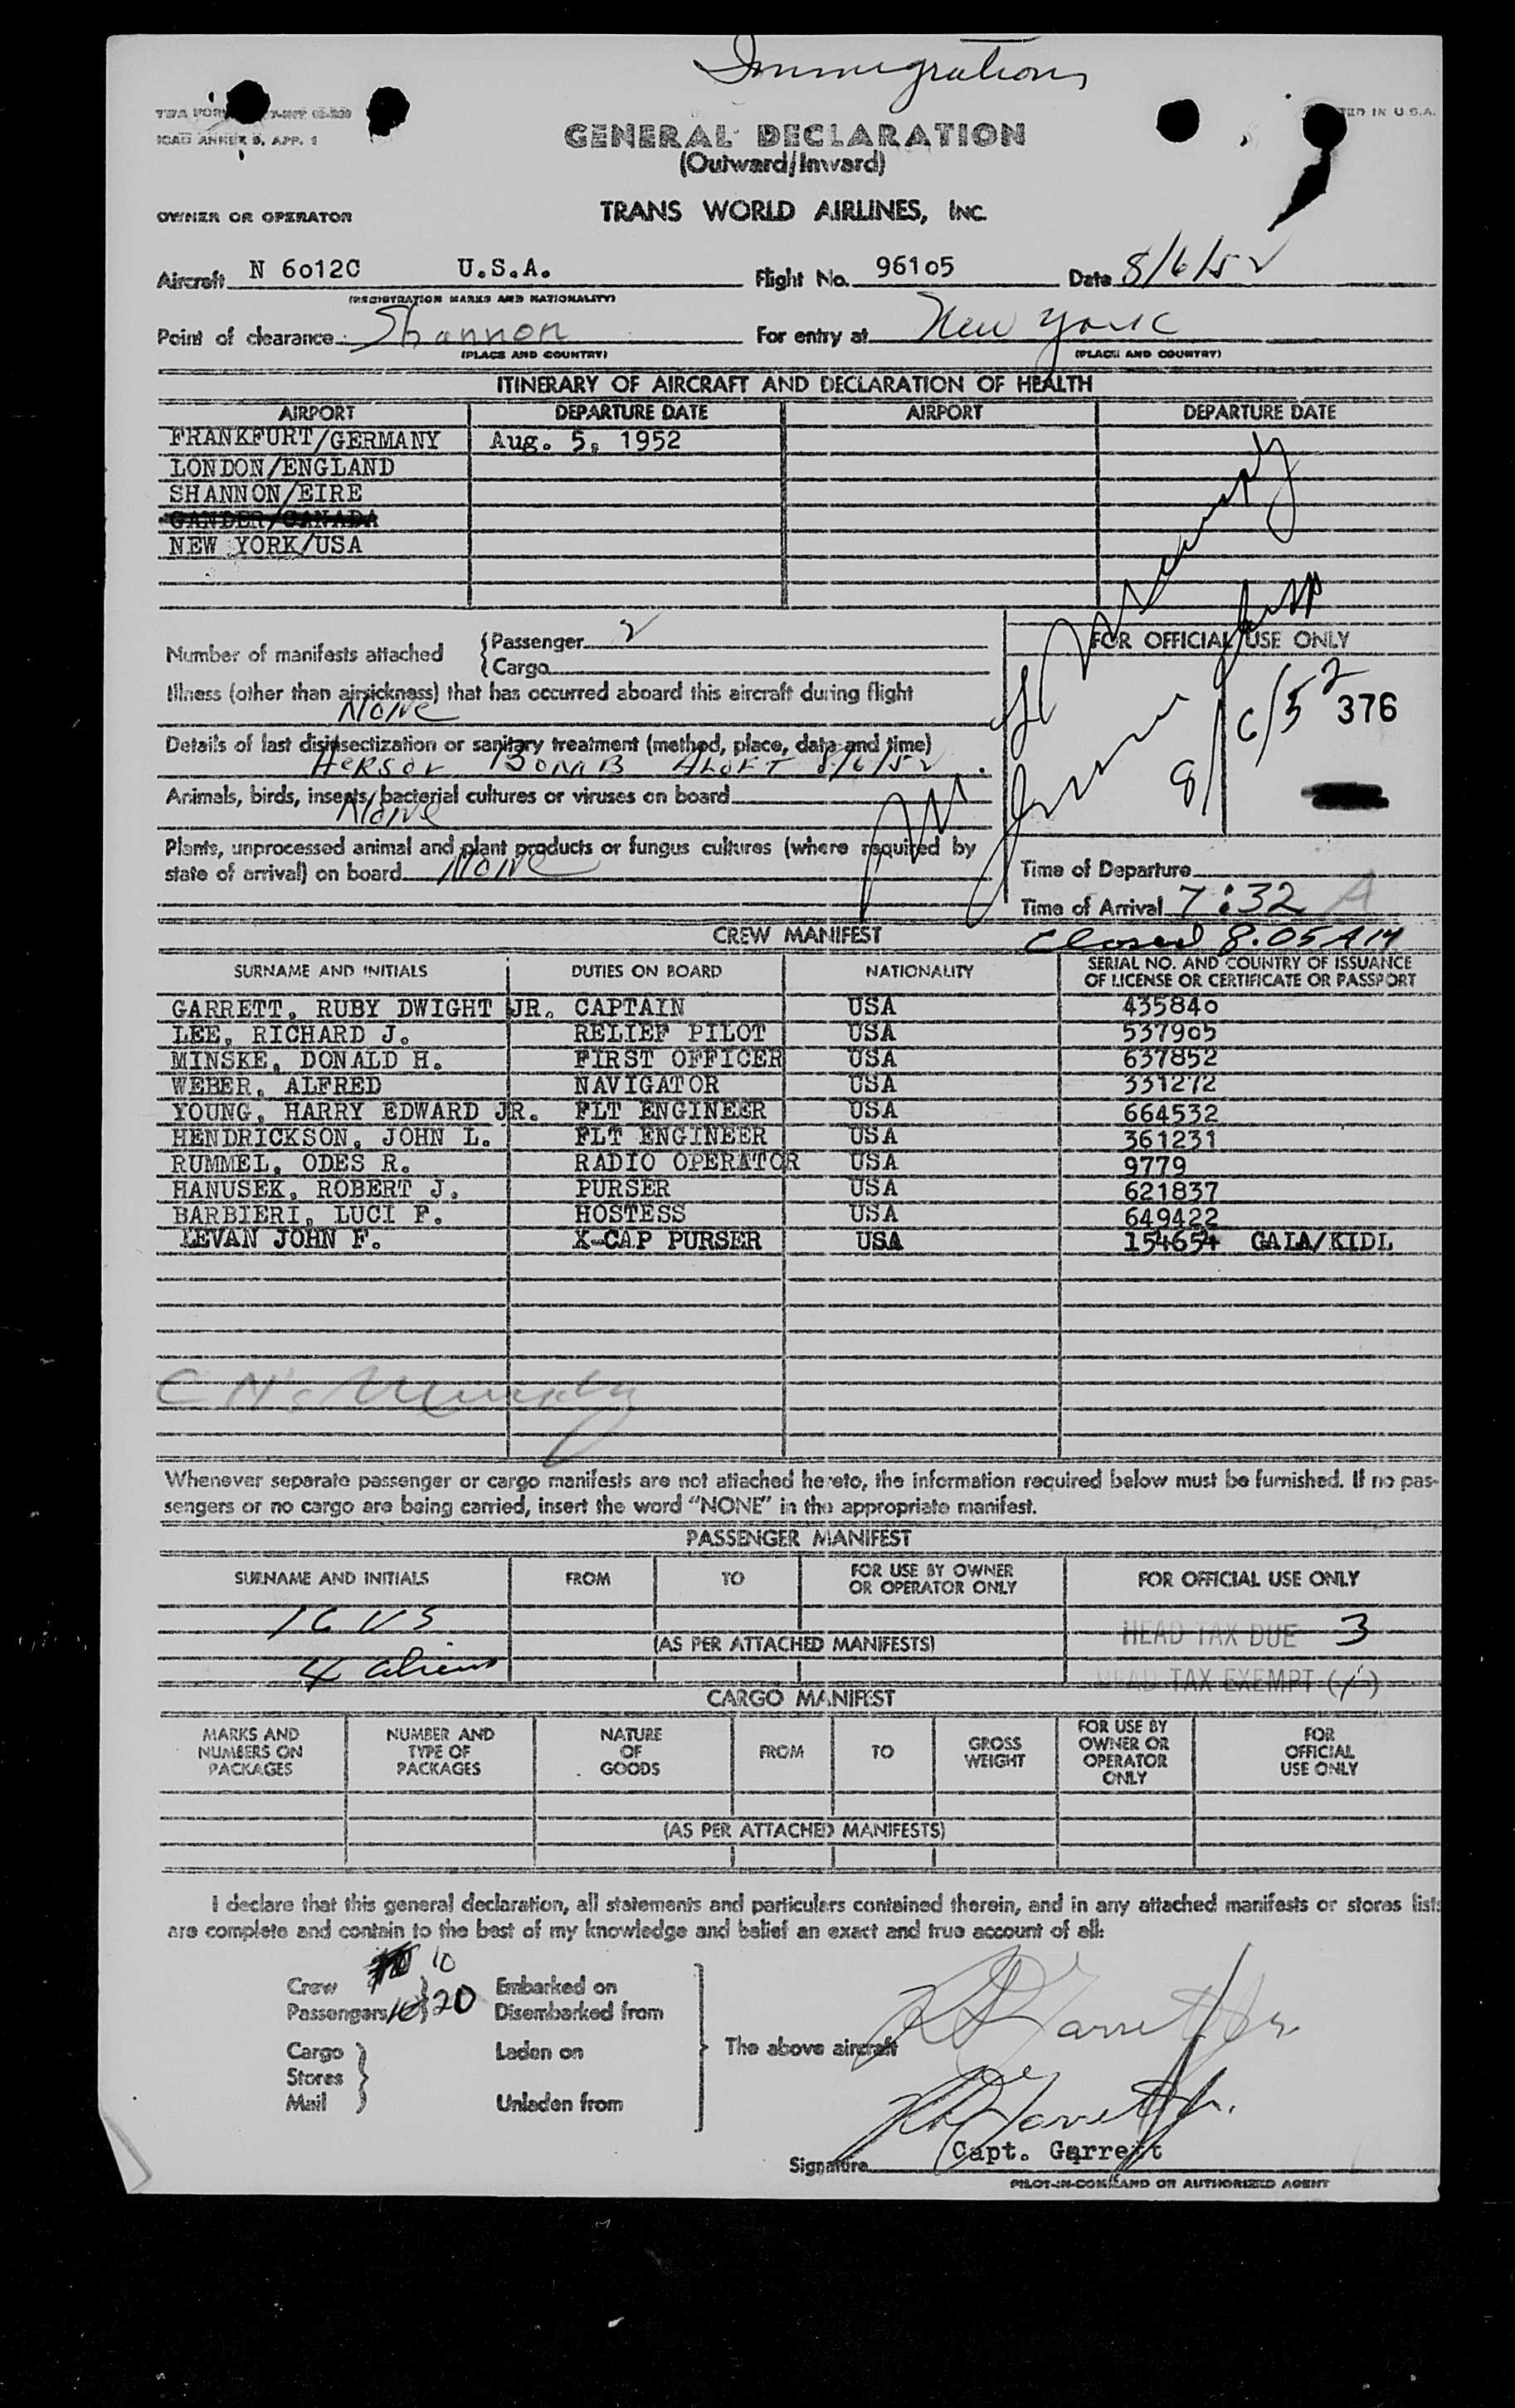 Immigration
ICAO ANNEX 9, APP. 1
GENERAL DECLARATION
(Outward/Inward)
OWNER OR OPERATOR TRANS WORLD AIRLINES, INC.
Aircraft N 6012C U.S.A. Flight No. 96105 Date 8/6/52
(REGISTRATION MARKS AND NATIONALITY)
Point of clearance Shannon For entry at New York
(PLACE AND COUNTRY) (PLACE AND COUNTRY)
ITINERARY OF AIRCRAFT AND DECLARATION OF HEALTH
AIRPORT DEPARTURE DATE AIRPORT DEPARTURE DATE
FRANKFURT/GERMANY Aug. 5, 1952
LONDON/ENGLAND
SHANNON/EIRE
GANDER/CANADA
NEW YORK/USA
Number of manifests attached
Passenger 2
Cargo
FOR OFFICIAL USE ONLY
Illness (other than airsickness) that has occurred aboard this aircraft during flight
None
8/6/52 376
Details of last disinsectization or sanitary treatment (method, place, date and time)
Aersol Bomb Aloft 8/6/52
Animals, birds, insects, bacterial cultures or viruses on board
None
Plants, unprocessed animal and plant products or fungus cultures (where required by
state of arrival) on board None
Time of Departure
Time of Arrival 7:32 A
Closed 8.05 AM
CREW MANIFEST
SURNAME AND INITIALS DUTIES ON BOARD NATIONALITY SERIAL NO. AND COUNTRY OF ISSUANCE OF LICENSE OR CERTIFICATE OR PASSPORT
GARRETT, RUBY DWIGHT JR. CAPTAIN USA 435840
LEE, RICHARD J. RELIEF PILOT USA 537905
MINSKE, DONALD H. FIRST OFFICER USA 637852
WEBER, ALFRED NAVIGATOR USA 331272
YOUNG, HARRY EDWARD JR. FLT ENGINEER USA 664532
HENDRICKSON, JOHN L. FLT ENGINEER USA 361231
RUMMEL, ODES R. RADIO OPERATOR USA 9779
HANUSEK, ROBERT J. PURSER USA 621837
BARBIERI, LUCI F. HOSTESS USA 649422
LEVAN JOHN F. X-CAP PURSER USA 154654 GALA/KIDL
Whenever separate passenger or cargo manifests are not attached hereto, the information required below must be furnished. If no pas-
sengers or no cargo are being carried, insert the word "NONE" in the appropriate manifest.
PASSENGER MANIFEST
SURNAME AND INITIALS FROM TO FOR USE BY OWNER OR OPERATOR ONLY FOR OFFICIAL USE ONLY
16 US
HEAD TAX DUE 3
(AS PER ATTACHED MANIFESTS)
4 aliens
HEAD TAX EXEMPT (1)
CARGO MANIFEST
MARKS AND NUMBERS ON PACKAGES NUMBER AND TYPE OF PACKAGES NATURE OF GOODS FROM TO GROSS WEIGHT FOR USE BY OWNER OR OPERATOR ONLY FOR OFFICIAL USE ONLY
(AS PER ATTACHED MANIFESTS)
I declare that this general declaration, all statements and particulars contained therein, and in any attached manifests or stores lists
are complete and contain to the best of my knowledge and belief an exact and true account of all:
Crew 10 Embarked on
Passengers 20 Disembarked from
Cargo Laden on
The above aircraft
Stores
Mail Unladen from
R D Garrett Jr.
R D Garrett Jr.
Signature Capt. Garrett
PILOT-IN-COMMAND OR AUTHORIZED AGENT